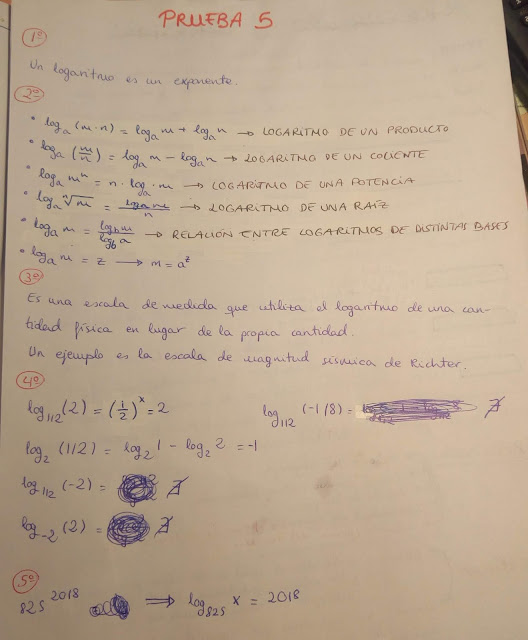 PRUEBA 5
1º
Un logaritmo es un exponente.
2º
• logₐ (m·n) = logₐ m + logₐ n → LOGARITMO DE UN PRODUCTO
• logₐ (m/n) = logₐ m − logₐ n → LOGARITMO DE UN COCIENTE
• logₐ mⁿ = n · logₐ m → LOGARITMO DE UNA POTENCIA
• logₐ ⁿ√m = logₐ m / n → LOGARITMO DE UNA RAÍZ
• logₐ m = log_b m / log_b a → RELACIÓN ENTRE LOGARITMOS DE DISTINTAS BASES
• logₐ m = z → m = a^z
3º
Es una escala de medida que utiliza el logaritmo de una can-
tidad física en lugar de la propia cantidad.
Un ejemplo es la escala de magnitud sísmica de Richter.
4º
log_1/2 (2) = (1/2)^x = 2 log_1/2 (-1/8) = ∄
log₂ (1/2) = log₂ 1 − log₂ 2 = -1
log_1/2 (-2) = ∄
log_-2 (2) = ∄
5º
825^2018 ⟹ log_825 x = 2018